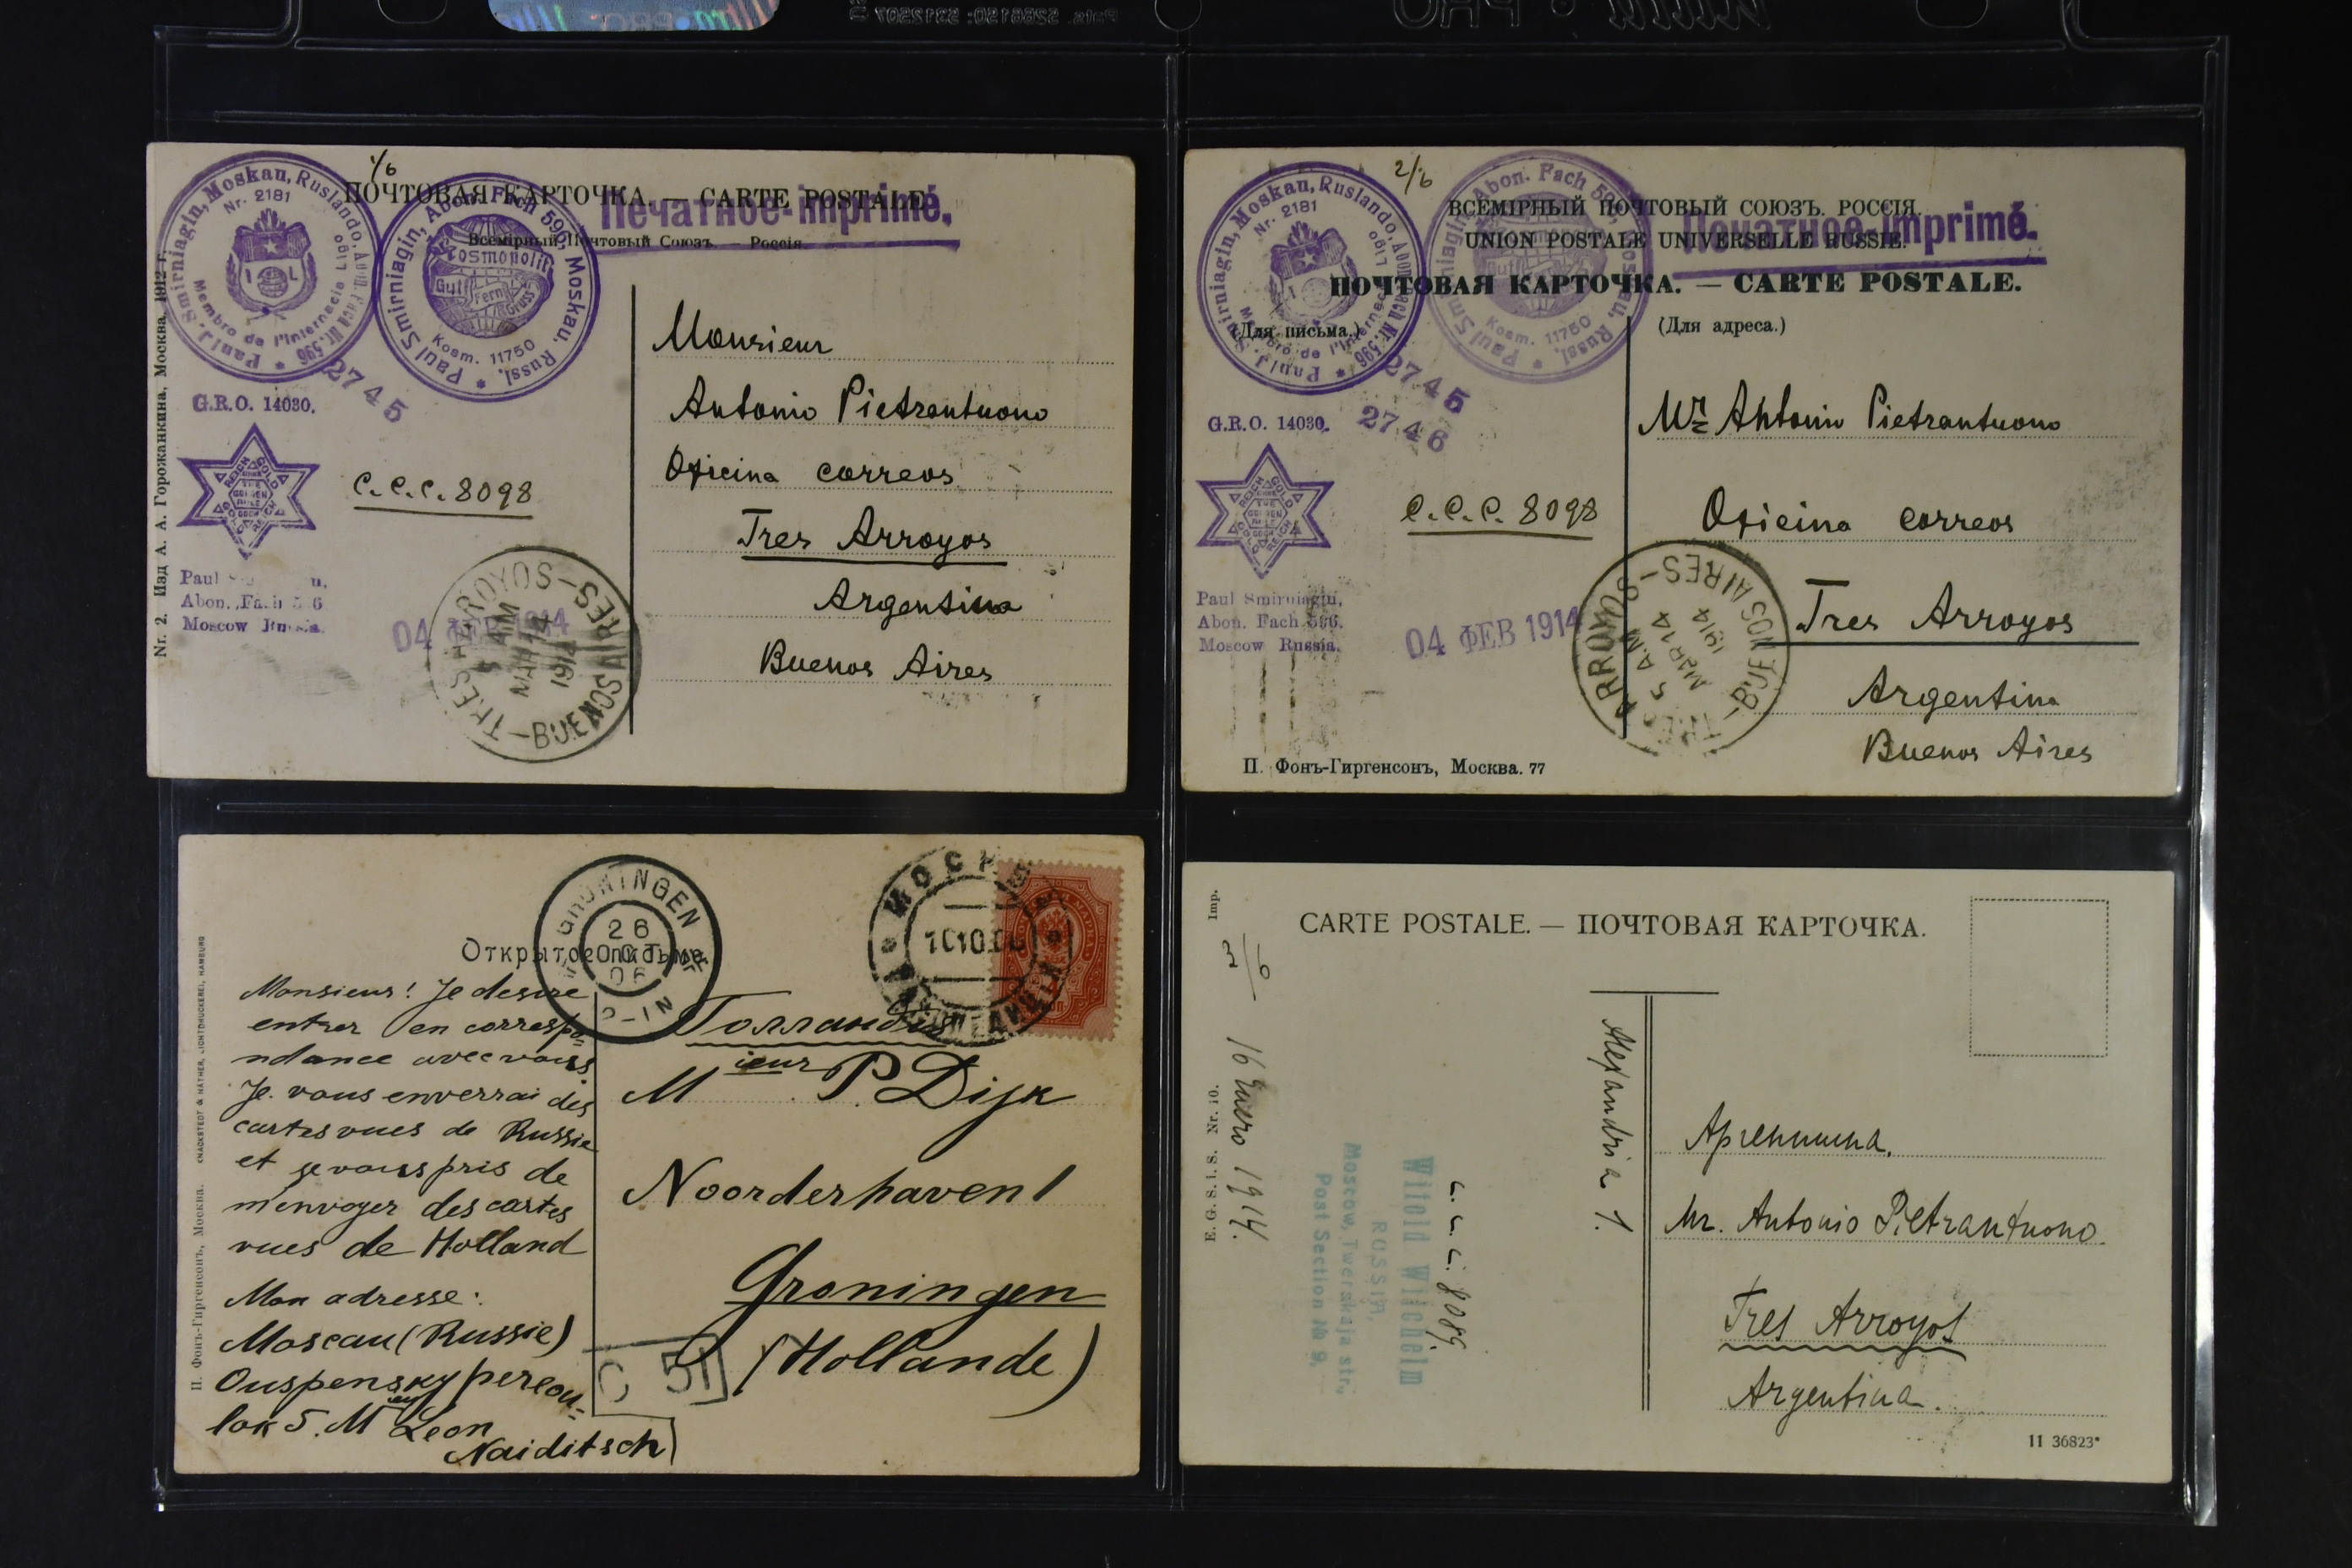 1/6
ПОЧТОВАЯ КАРТОЧКА. — CARTE POSTALE.
Всемірный Почтовый Союзъ. — Россія
Печатное-imprimé.
Paul J. Smirniagin, Moskau, Ruslando, Abon. Fach Nr. 596
Nr. 2181
I L
Membro de l'Internacia Ligo
Paul Smirniagin, Abon. Fach 596, Moskau. Russl.
Kosmopolit
Gut Fern Gruss
Kosm. 11750
2745
G.R.O. 14030.
REICH GOLD
THE GOLDEN RULE
GOLD REICH
C.C.C. 8098
Paul
Abon. Fach
Moscow Russia.
04 ФЕВ 1914
TRES ARROYOS
5 AM
MAR 14
1914
BUENOS AIRES
Nr. 2. Изд А. А. Горожанкина, Москва. 1912 г.
Monsieur
Antonio Pietrantuono
Oficina correos
Tres Arroyos
Argentina
Buenos Aires
2/6
ВСЕМІРНЫЙ ПОЧТОВЫЙ СОЮЗЪ. РОССІЯ
UNION POSTALE UNIVERSELLE RUSSIE.
Печатное-imprimé.
ПОЧТОВАЯ КАРТОЧКА. — CARTE POSTALE.
(Для письма.)
(Для адреса.)
Paul J. Smirniagin, Moskau, Ruslando, Abon. Fach Nr. 596
Nr. 2181
Membro de l'Internacia Ligo
Paul Smirniagin, Abon. Fach 596, Moskau. Russl.
Kosm. 11750
2745
2746
G.R.O. 14030.
REICH GOLD
THE GOLDEN RULE
GOLD REICH
C.C.C. 8098
Paul Smirniagin,
Abon. Fach 596.
Moscow Russia.
04 ФЕВ 1914
TRES ARROYOS
5 AM
MAR 14
1914
BUENOS AIRES
Mr Antonio Pietrantuono
Oficina correos
Tres Arroyos
Argentina
Buenos Aires
П. Фонъ-Гиргенсонъ, Москва. 77
Открытое письмо
GRONINGEN
26
OCT
06
МОСКВА
10 10 06
П. Фонъ-Гиргенсонъ, Москва. KNACKSTEDT & NÄTHER, LICHTDRUCKEREI, HAMBURG
Monsieur! Je desire
entrer en correspo=
ndance avec vous
Je vous enverrai des
cartes vues de Russie
et je vous pris de
m'envoyer des cartes
vues de Holland
Mon adresse:
Moscau (Russie)
Ouspensky pereou=
lok 5. M ieur Leon
Naiditsch
Голландия
M ieur P. Dijk
Noorderhaven 1
Groningen
(Hollande)
C 51
CARTE POSTALE. — ПОЧТОВАЯ КАРТОЧКА.
3/6
16 Enero 1914.
E. G. S. i. S. Nr. 10. Imp.
Witold Wilchelm
RUSSIA,
Moscow, Twerskaja str.,
Post Section № 9.
C.C.C. 8089.
Alexandria 1.
Аргентина.
Mr. Antonio Pietrantuono.
Tres Arroyos
Argentina.
11 36823*